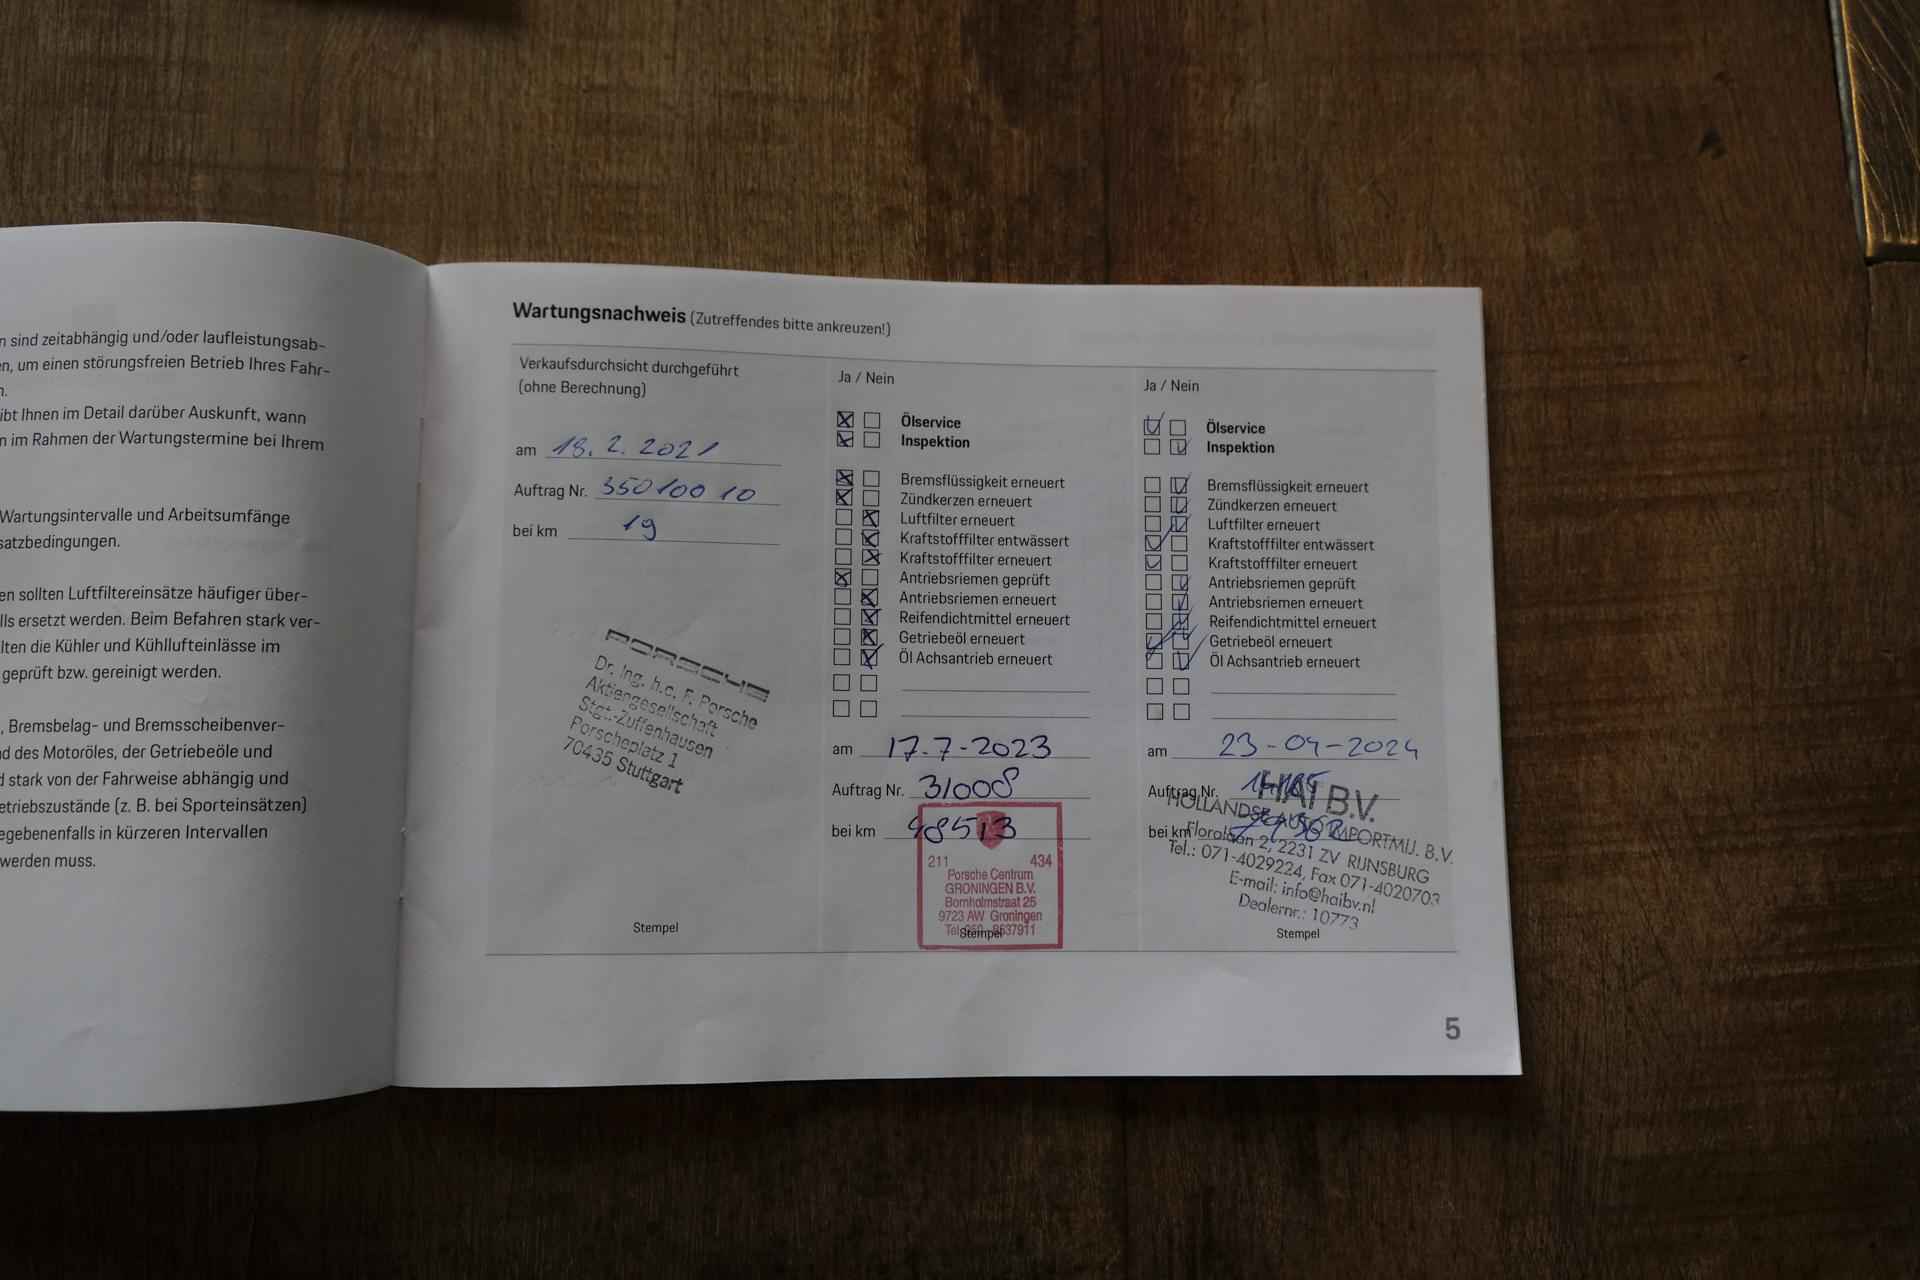 n sind zeitabhängig und/oder laufleistungsab-
en, um einen störungsfreien Betrieb Ihres Fahr-
n.
ibt Ihnen im Detail darüber Auskunft, wann
n im Rahmen der Wartungstermine bei Ihrem
Wartungsintervalle und Arbeitsumfänge
satzbedingungen.
en sollten Luftfiltereinsätze häufiger über-
lls ersetzt werden. Beim Befahren stark ver-
lten die Kühler und Kühllufteinlässe im
geprüft bzw. gereinigt werden.
, Bremsbelag- und Bremsscheibenver-
nd des Motoröles, der Getriebeöle und
d stark von der Fahrweise abhängig und
etriebszustände (z. B. bei Sporteinsätzen)
egebenenfalls in kürzeren Intervallen
werden muss.
Wartungsnachweis (Zutreffendes bitte ankreuzen!)
Verkaufsdurchsicht durchgeführt
(ohne Berechnung)
am 18.2.2021
Auftrag Nr. 350100 10
bei km 19
PORSCHE
Dr. Ing. h.c. F. Porsche
Aktiengesellschaft
Stgt.-Zuffenhausen
Porscheplatz 1
70435 Stuttgart
Stempel
Ja / Nein
Ölservice
Inspektion
Bremsflüssigkeit erneuert
Zündkerzen erneuert
Luftfilter erneuert
Kraftstofffilter entwässert
Kraftstofffilter erneuert
Antriebsriemen geprüft
Antriebsriemen erneuert
Reifendichtmittel erneuert
Getriebeöl erneuert
Öl Achsantrieb erneuert
am 17.7-2023
Auftrag Nr. 31008
bei km 48513
211 434
Porsche Centrum
GRONINGEN B.V.
Bornholmstraat 25
9723 AW Groningen
Tel.
Stempel
Ja / Nein
Ölservice
Inspektion
Bremsflüssigkeit erneuert
Zündkerzen erneuert
Luftfilter erneuert
Kraftstofffilter entwässert
Kraftstofffilter erneuert
Antriebsriemen geprüft
Antriebsriemen erneuert
Reifendichtmittel erneuert
Getriebeöl erneuert
Öl Achsantrieb erneuert
am 23-04-2024
Auftrag Nr.
HAI B.V.
HOLLANDSE AUTO IMPORTMIJ. B.V.
bei km
Floralaan 2, 2231 ZV RIJNSBURG
Tel.: 071-4029224, Fax 071-4020703
E-mail: info@haibv.nl
Dealernr.: 10773
Stempel
5